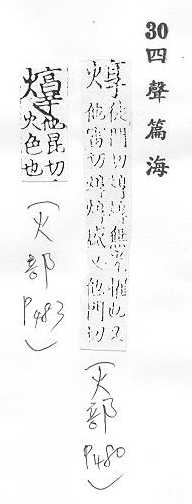 30四聲篇海
焞
徒門切焞焞也又
他雷切焞焞他門切
(火部P480)
焞
他昆切
火色也
(火部P483)